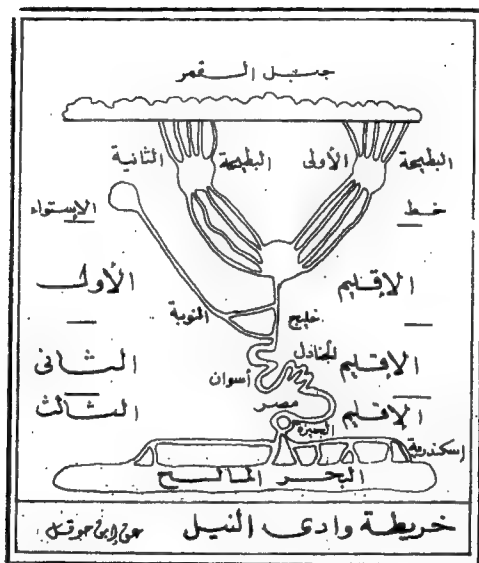 جبل القمر
البطيحة الأولى البطيحة الثانية
خط الإستواء
الإقليم الأول
خليج النوبة
الجنادل
الإقليم الثاني
أسوان
مصر
الإقليم الثالث
الجيزة
اسكندرية
البحر المالح
خريطة وادى النيل عن إبن حوقل